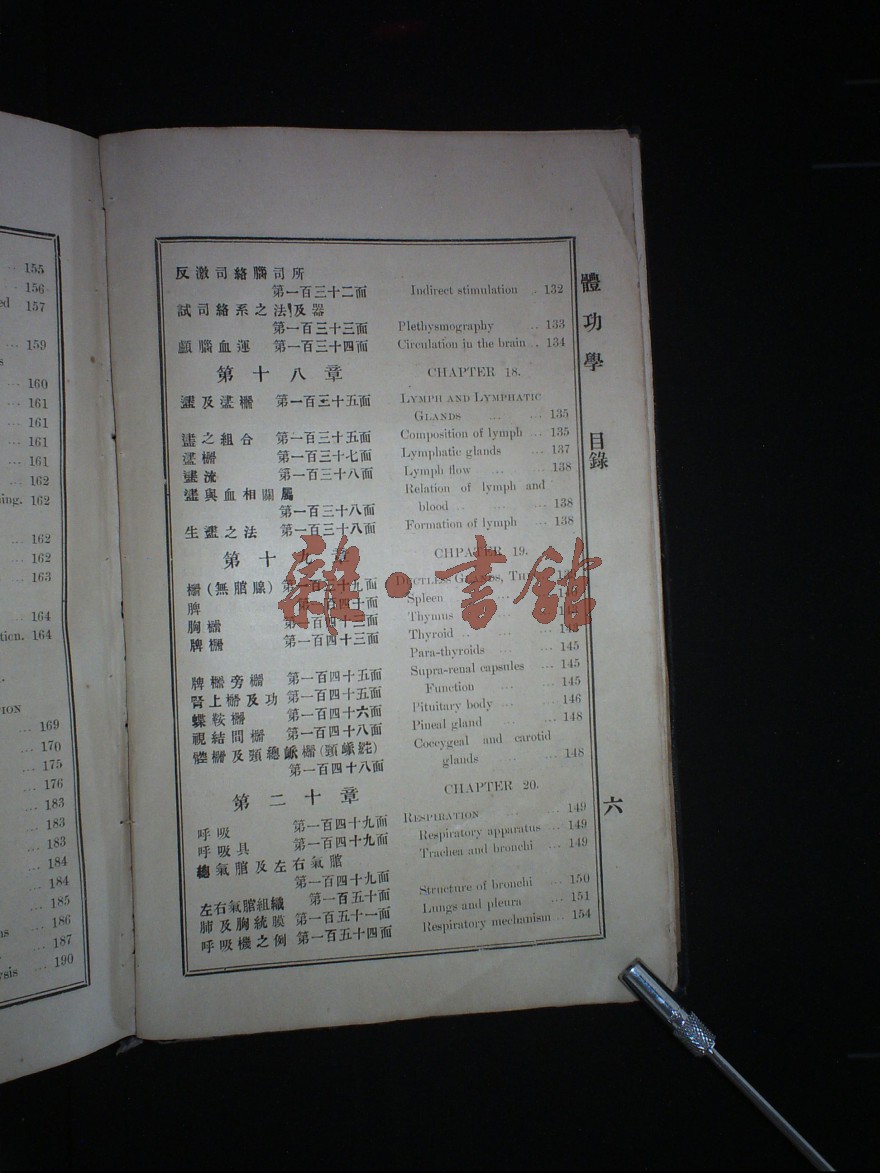 155
156
ed 157
159
s
160
161
161
161
161
162
ing. 162
162
162
163
164
tion. 164
ION
169
170
175
176
183
183
183
184
184
185
ns 186
187
ysis 190
體功學 目錄
六
反激司絡腦司所
第一百三十二面 Indirect stimulation .. 132
試司絡系之法及器
第一百三十三面 Plethysmography .. 133
顱腦血運 第一百三十四面 Circulation in the brain .. 134
第十八章 CHAPTER 18.
及 第一百三十五面 LYMPH AND LYMPHATIC
GLANDS ... ... 135
之組合 第一百三十五面 Composition of lymph ... 135
第一百三十七面 Lymphatic glands ... 137
第一百三十八面 Lymph flow ... ... 138
與血相關屬 Relation of lymph and
第一百三十八面 blood .. ... ... 138
生之法 第一百三十八面 Formation of lymph ... 138
第十九章 CHPATER 19.
(無腺) 第一百三十九面 DUCTLESS GLANDS, THE
脾 第一百四十面 Spleen
胸 第一百四十三面 Thymus
第一百四十三面 Thyroid
Para-thyroids ... ... 145
旁 第一百四十五面 Supra-renal capsules ... 145
腎上及功 第一百四十五面 Function ... ... 145
蝶鞍 第一百四十六面 Pituitary body ... ... 146
視結問 第一百四十八面 Pineal gland ... ... 148
及頸總 Coccygeal and carotid
第一百四十八面 glands ... ... 148
第二十章 CHAPTER 20.
呼吸 第一百四十九面 RESPIRATION ... ... 149
呼吸具 第一百四十九面 Respiratory apparatus ... 149
總氣及左右氣 Trachea and bronchi ... 149
第一百四十九面
左右氣組織 第一百五十面 Structure of bronchi ... 150
肺及胸統膜 第一百五十一面 Lungs and pleura ... 151
呼吸機之例 第一百五十四面 Respiratory mechanism .. 154
雜·書館